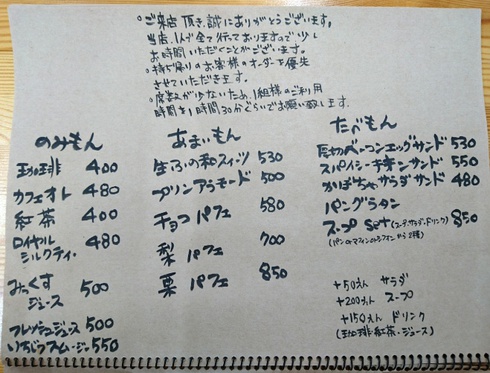 ○ご来店頂き、誠にありがとうございます。
当店、1人で全て行っておりますので、少し
お時間いただくことがございます。
○持ち帰りのお客様のオーダーを優先
させていただきます。
○席数が少ないため、1組様のご利用
時間を1時間30分ぐらいでお願い致します。
のみもん
珈琲 400
カフェオレ 480
紅茶 400
ロイヤル
ミルクティ・ 480
みっくす
ジュース 500
フレッシュジュース 500
いちじくスムージー 550
あまいもん
生ふの和スイーツ 530
プリンアラモード 500
チョコパフェ 580
梨パフェ 700
栗パフェ 850
たべもん
厚切ベーコンエッグサンド 530
スパイシーチキンサンド 550
かぼちゃサラダサンド 480
パングラタン
スープ set (スープ、サラダ、ドリンク) 850
+50えん サラダ
+200えん スープ
+150えん ドリンク
(珈琲・紅茶・ジュース)